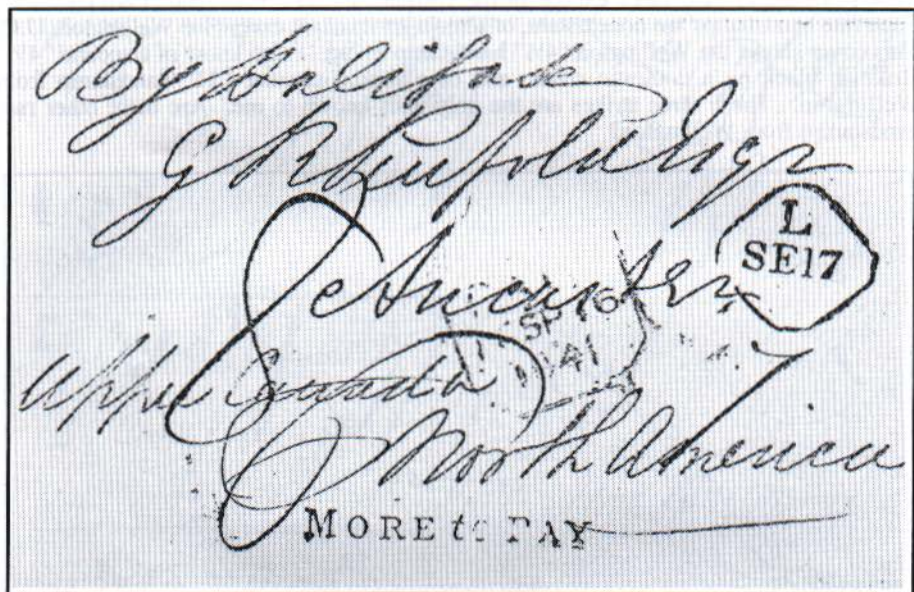 By Halifax
G Esqr
L
SE17
Ancaster
SP 16
1841
Upper Canada
North America
MORE to PAY